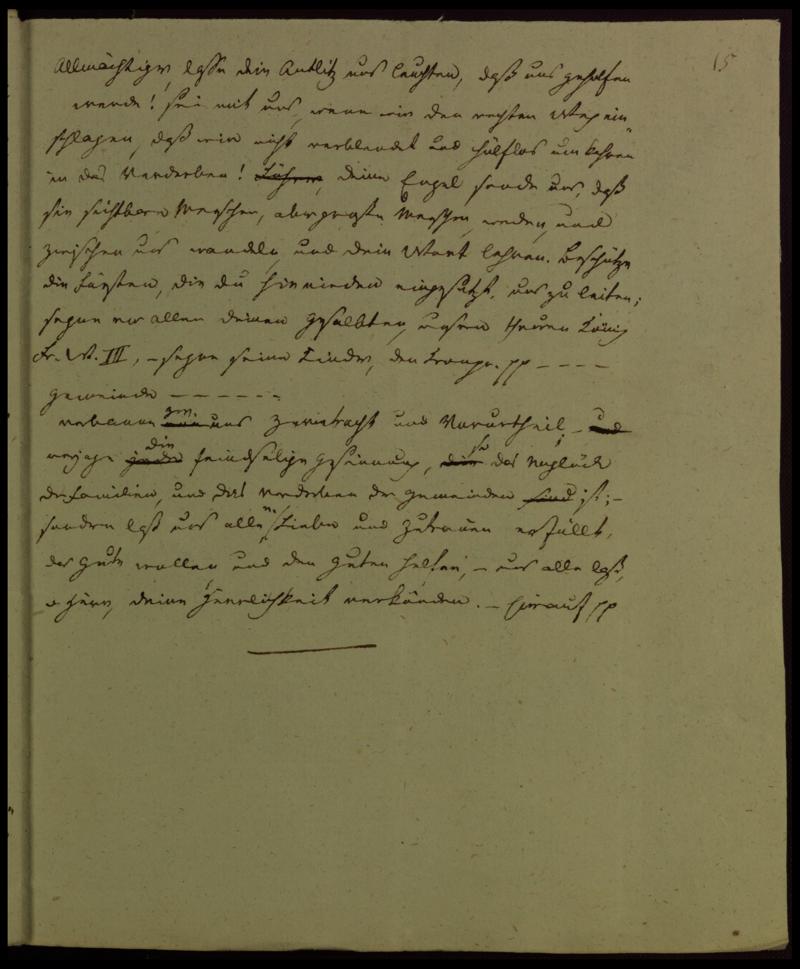 15
Allmächtiger, lasse dein Antlitz uns leuchten, daß uns geholfen
werde! sei mit uns, wenn wir den rechten Weg ein-
schlagen, daß wir nicht verblendet und hülflos umkehren
in das Verderben! deine Engel sende uns, daß
sie sichtbare Menschen, Menschen werden, und
zwischen uns wandeln, und dein Wort lehren. Beschütze
die Fürsten, die du hienieden eingesetzt, uns zu leiten;
segne vor allen deinen Gesalbten, unsern Herren König
Fr. W. III, – segne seine Kinder, den Kronpr. pp – – – –
Gemeinde – – – – – –
verbanne uns Zwietracht und Vorurtheil, – und
verjage jede die feindselige Gesinnung, die das Unglück
der Familien, und das Verderben der Gemeinden sind ist; –
sondern laß uns alle, Liebe und Zutrauen erfüllt,
das Gute wollen und den Guten helfen, – uns alle laß,
o Herr, deine Herrlichkeit verkünden. – Hierauf pp